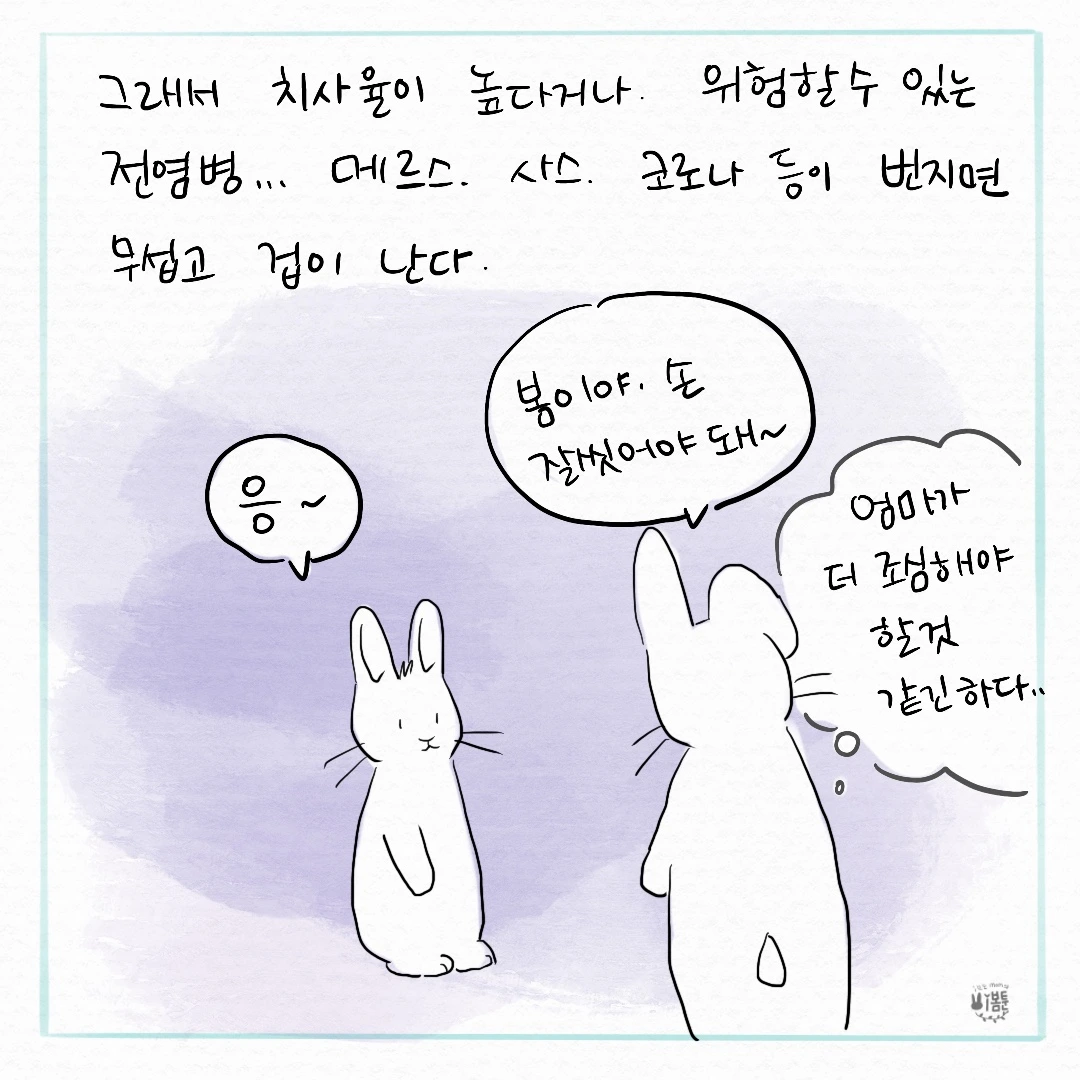 그래서 치사율이 높다거나. 위험할 수 있는
전염병... 메르스. 사스. 코로나 등이 번지면
무섭고 겁이 난다.
봄이야. 손
잘씻어야 돼~
응~
엄마가
더 조심해야
할것
같긴하다..